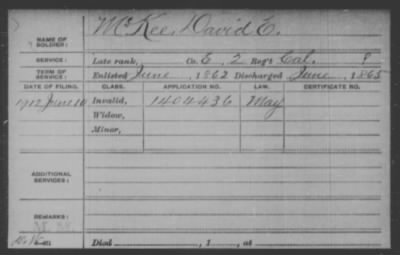 NAME OF SOLDIER: McKee, David E.
SERVICE: Late rank, Co. E, 2 Reg't Cal.
TERM OF SERVICE: Enlisted June, 1862 Discharged June, 1865
DATE OF FILING. CLASS. APPLICATION NO. LAW. CERTIFICATE NO.
1912 June 10 Invalid, 1404436 May
Widow,
Minor,
ADDITIONAL SERVICES:
REMARKS:
Died, 1, at